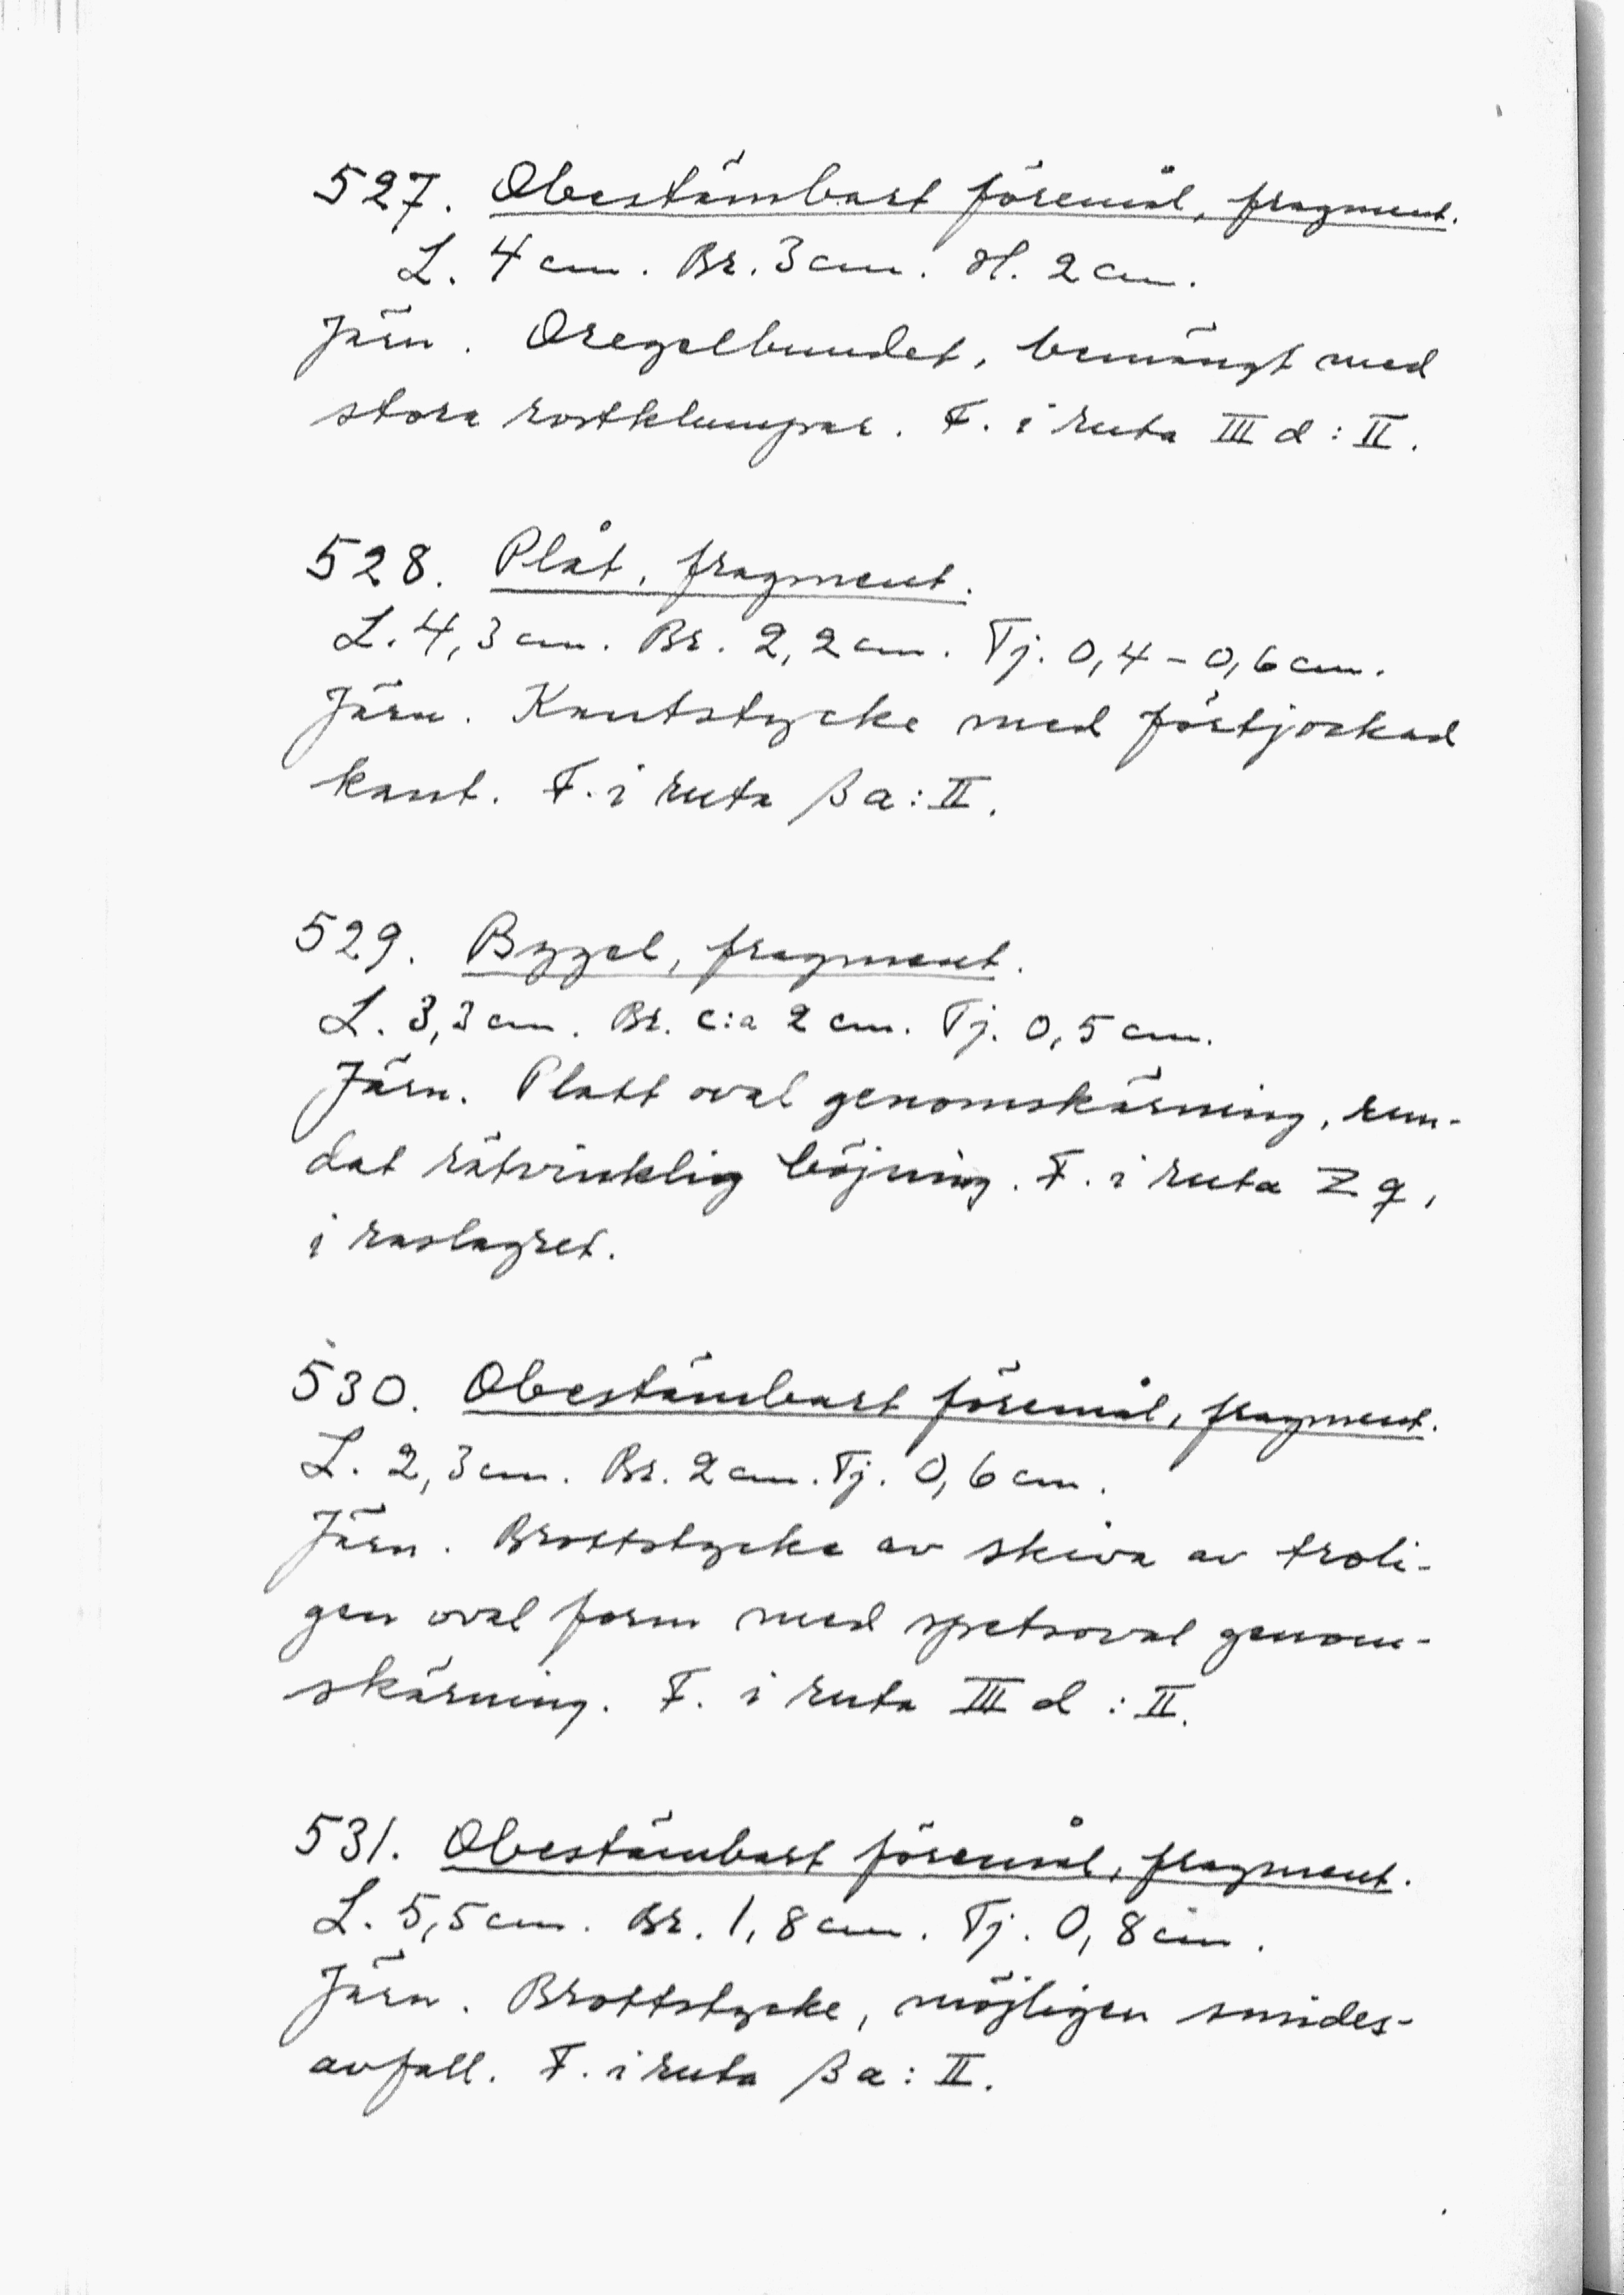 527. Obestämbart föremål, fragment.
L. 4 cm. Br. 3 cm. H. 2 cm.
Järn. Oregelbundet, bemängt med
stora rostklumpar. F. i ruta III d : II.
528. Plåt, fragment.
L. 4,3 cm. Br. 2,2 cm. Tj. 0,4 - 0,6 cm.
Järn. Kantstycke med förtjockad
kant. F. i ruta β a : II.
529. Bygel, fragment.
L. 3,3 cm. Br. c:a 2 cm. Tj. 0,5 cm.
Järn. Platt oval genomskärning, run-
dat rätvinklig böjning. F. i ruta Z q,
i raslagret.
530. Obestämbart föremål, fragment.
L. 2,3 cm. Br. 2 cm. Tj. 0,6 cm.
Järn. Brottstycke av skiva av troli-
gen oval form med spetsoval genom-
skärning. F. i ruta III d : II.
531. Obestämbart föremål, fragment.
L. 5,5 cm. Br. 1,8 cm. Tj. 0,8 cm.
Järn. Brottstycke, möjligen smides-
avfall. F. i ruta β a : II.